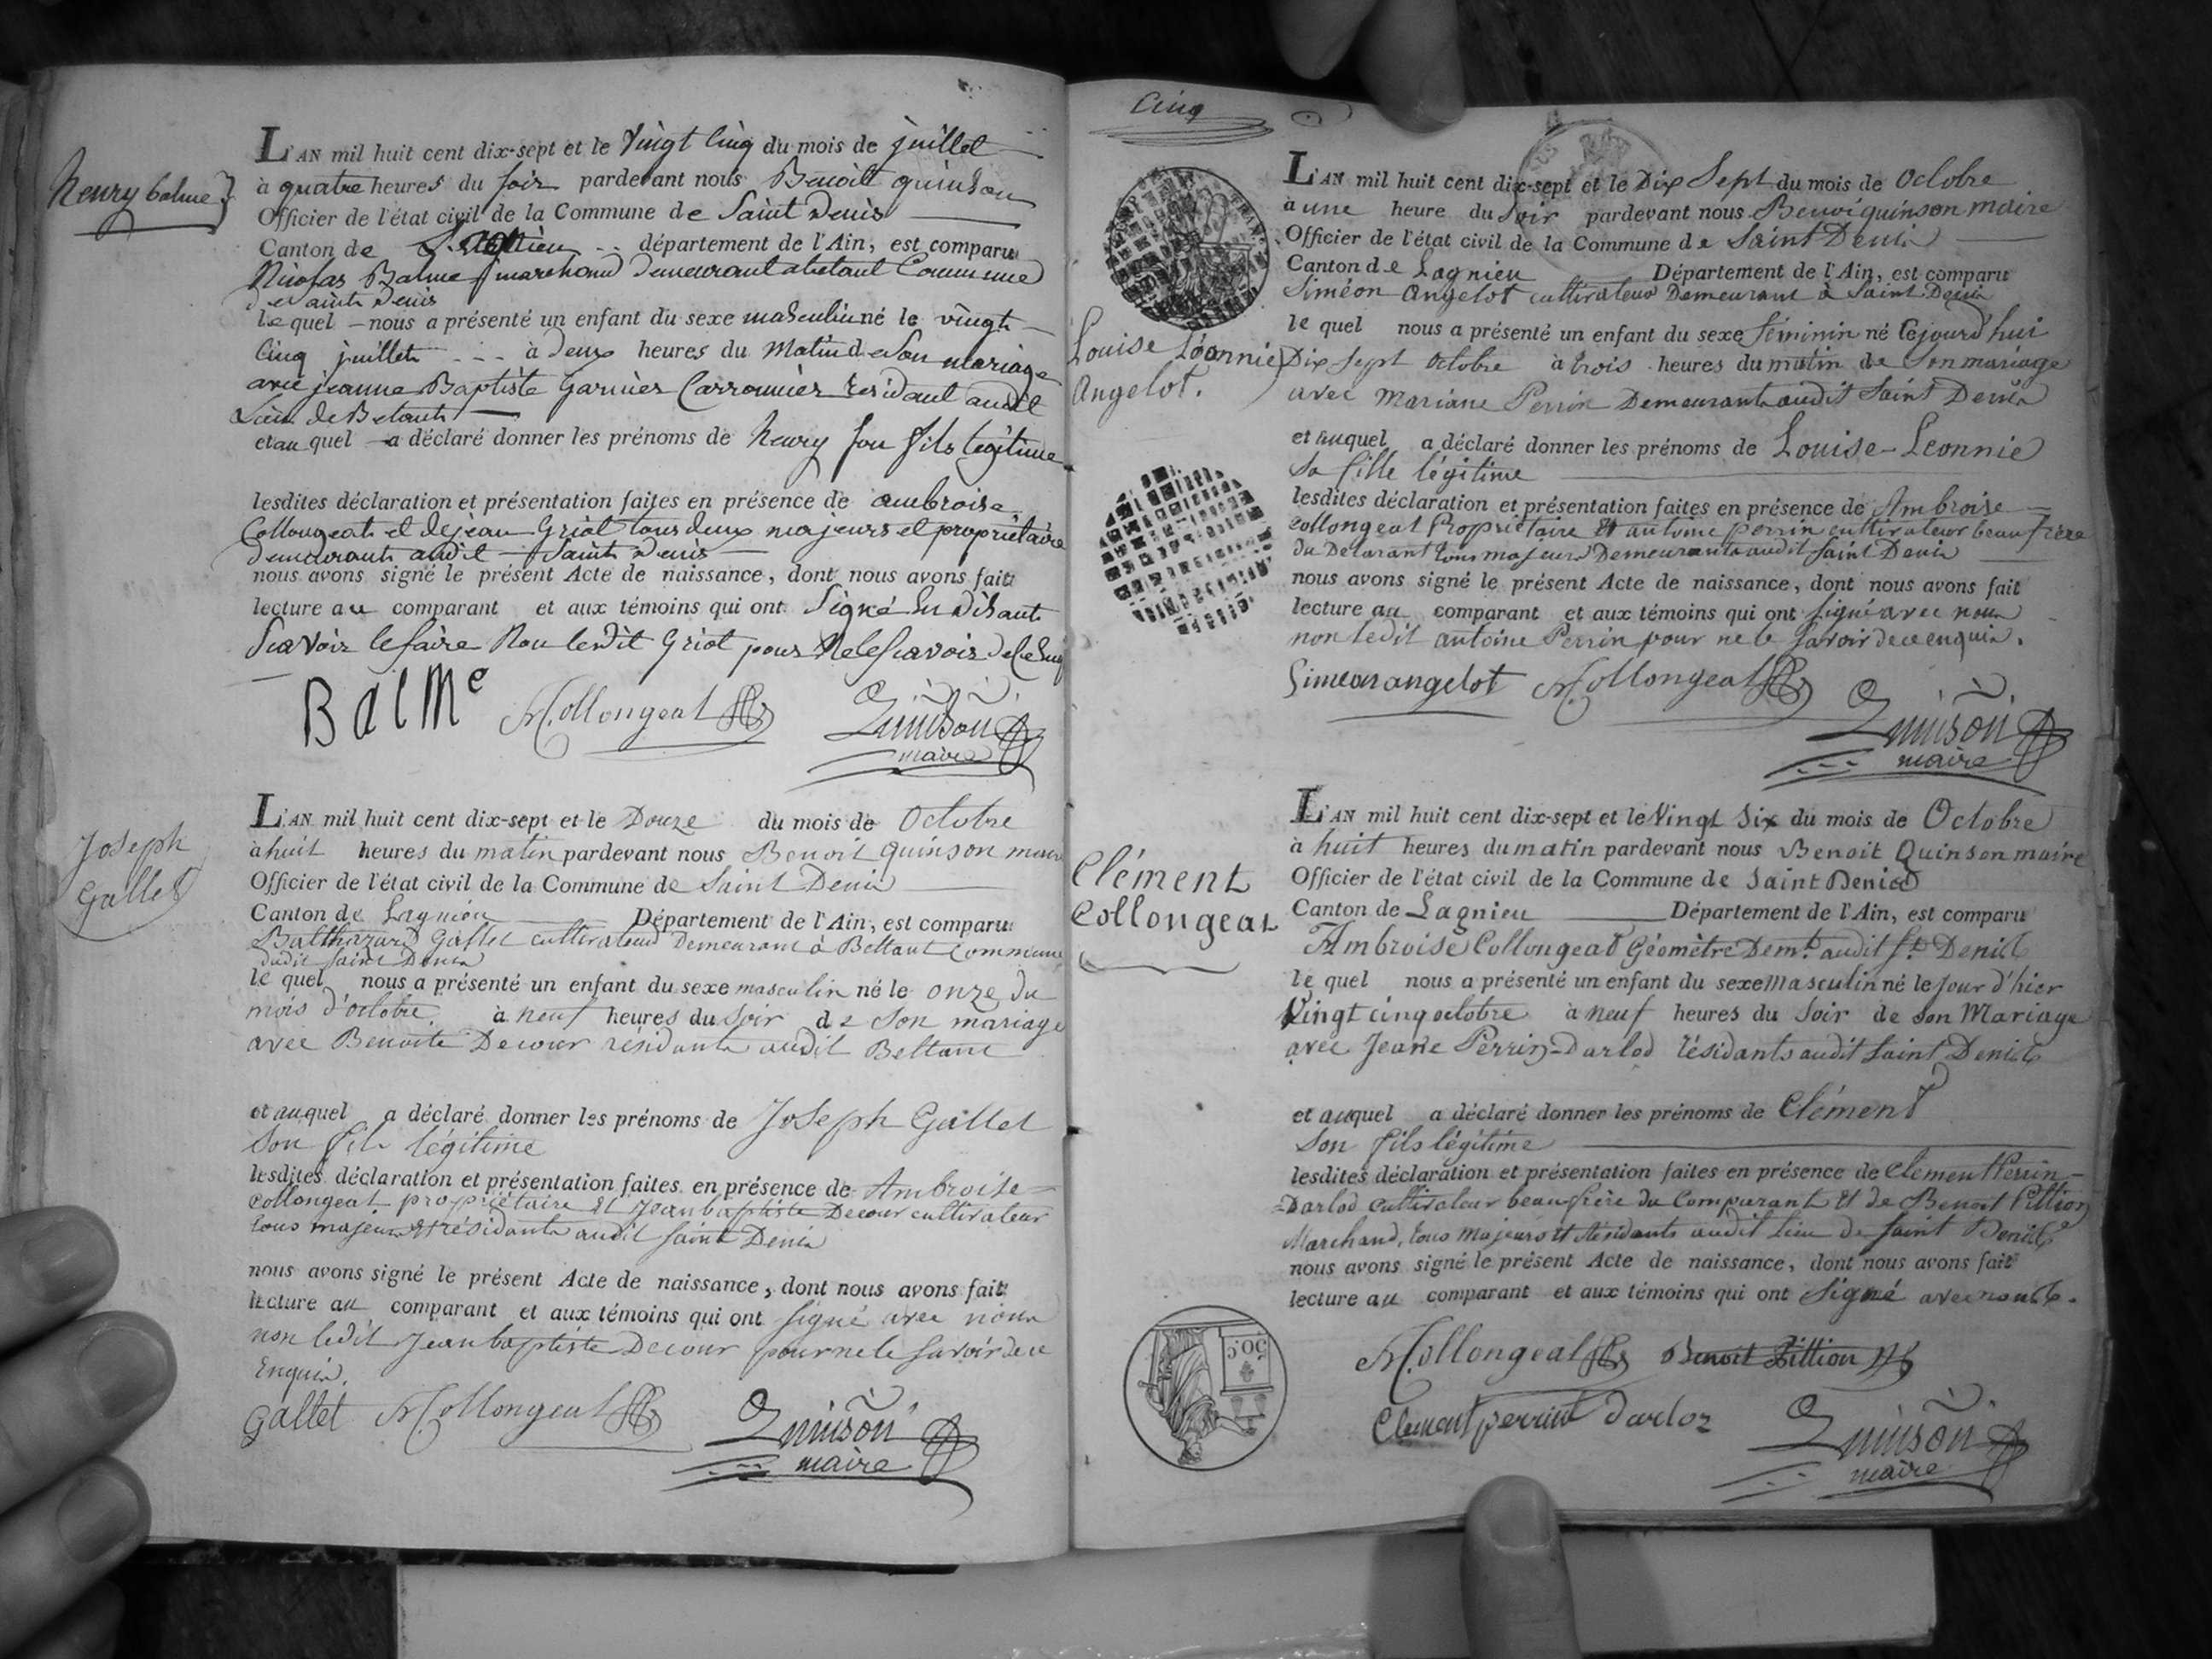 henry balme
L'AN mil huit cent dix-sept et le vingt cinq du mois de juillet
à quatre heures du soir pardevant nous Benoit quinson
Officier de l'état civil de la Commune de Saint Denis
Canton de département de l'Ain, est comparu
Nicolas Balme marchand demeurant abetant Commune
de saint denis
le quel nous a présenté un enfant du sexe masculin né le vingt
cinq juillet à deux heures du Matin de son mariage
avec jeanne Baptiste Garnier residant audit
Lieu de Betant
et au quel a déclaré donner les prénoms de henry son fils legitime
lesdites déclaration et présentation faites en présence de ambroise
Collongeat et de jean Griot tous deux majeurs et proprietaire
demeurant audit Saint Denis
nous avons signé le présent Acte de naissance, dont nous avons fait
lecture au comparant et aux témoins qui ont Signé disant
Scavoir le faire Non ledit Griot pour Ne le Scavoir de ce
Balme Collongeat Quinson
maire
Joseph
Gallet
L'AN mil huit cent dix-sept et le Douze du mois de Octobre
à huit heures du matin pardevant nous Benoit quinson maire
Officier de l'état civil de la Commune de Saint Denis
Canton de Lagnieu Département de l'Ain, est comparu
Balthazard Gallet cultivateur Demeurant à Bettant Commune
dudit Saint Denis
le quel nous a présenté un enfant du sexe masculin né le onze du
mois d'octobre à neuf heures du Soir de Son mariage
avec Benoite Decour résidante audit Bettant
et auquel a déclaré donner les prénoms de Joseph Gallet
Son fils légitime
lesdites déclaration et présentation faites en présence de Ambroise
Collongeat propriétaire Et Jean baptiste Decour cultivateur
tous majeurs Et résidants audit Saint Denis
nous avons signé le présent Acte de naissance, dont nous avons fait
lecture au comparant et aux témoins qui ont signé avec nous
non ledit Jean baptiste Decour pour ne le savoir de ce
Enquis.
Gallet Collongeat Quinson
maire
Cinq
Louise Léonnie
Angelot.
L'AN mil huit cent dix-sept et le Dix Sept du mois de Octobre
à une heure du Soir pardevant nous Benoi quinson maire
Officier de l'état civil de la Commune de Saint Denis
Canton de Lagnieu Département de l'Ain, est comparu
Siméon Angelot cultivateur Demeurant à Saint Denis
le quel nous a présenté un enfant du sexe féminin né cejourd'hui
Dix Sept Octobre à trois heures du matin de Son mariage
avec Mariane Perrin Demeurante audit Saint Denis
et auquel a déclaré donner les prénoms de Louise-Leonnie
Sa fille légitime
lesdites déclaration et présentation faites en présence de Ambroise
Collongeat Propriétaire Et antoine perrin cultivateur beau frere
du Déclarant tous majeurs Demeurants audit Saint Denis
nous avons signé le présent Acte de naissance, dont nous avons fait
lecture au comparant et aux témoins qui ont signé avec nous
non ledit antoine Perrin pour ne le savoir de ce enquis.
Simeon angelot Collongeat
Quinson
maire
Clément
Collongeat
L'AN mil huit cent dix-sept et le Vingt Six du mois de Octobre
à huit heures du matin pardevant nous Benoit Quinson maire
Officier de l'état civil de la Commune de Saint Denis
Canton de Lagnieu Département de l'Ain, est comparu
Ambroise Collongeat Géomètre Demt. audit St. Denis
le quel nous a présenté un enfant du sexe Masculin né le Jour d'hier
Vingt cinq octobre à neuf heures du Soir de son Mariage
avec Jeane Perrin-Darlod résidants audit Saint Denis
et auquel a déclaré donner les prénoms de Clément
Son fils légitime
lesdites déclaration et présentation faites en présence de Clement Perrin-
Darlod Cultivateur beaufrère du Comparant Et de Benoit Pittion
Marchand, tous Majeurs Et résidants audit Lieu de Saint Denis
nous avons signé le présent Acte de naissance, dont nous avons fait
lecture au comparant et aux témoins qui ont Signé avec nous.
Collongeat Benoit Pittion
Clement perrint darloz Quinson
maire
50C.